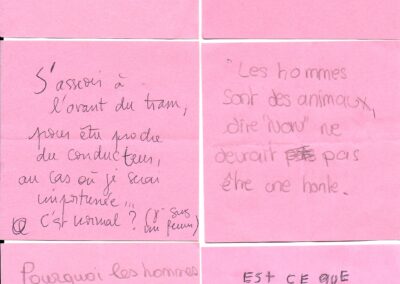 S'assoir à
l'avant du tram,
pour être proche
du conducteur,
au cas où je serai
importunée...
C'est normal ? (je suis
une femme)
"Les hommes
sont des animaux,
dire "NON" ne
devrait pas
être une honte.
Pourquoi les hommes
EST CE QUE